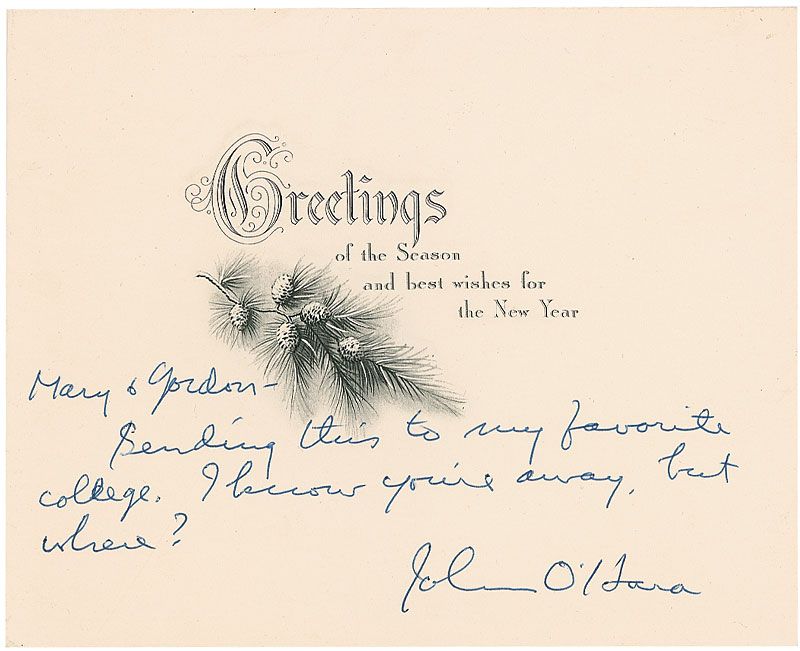 Greetings
of the Season
and best wishes for
the New Year
Mary & Gordon-
Sending this to my favorite
college. I know you're away, but
where?
John O'Hara